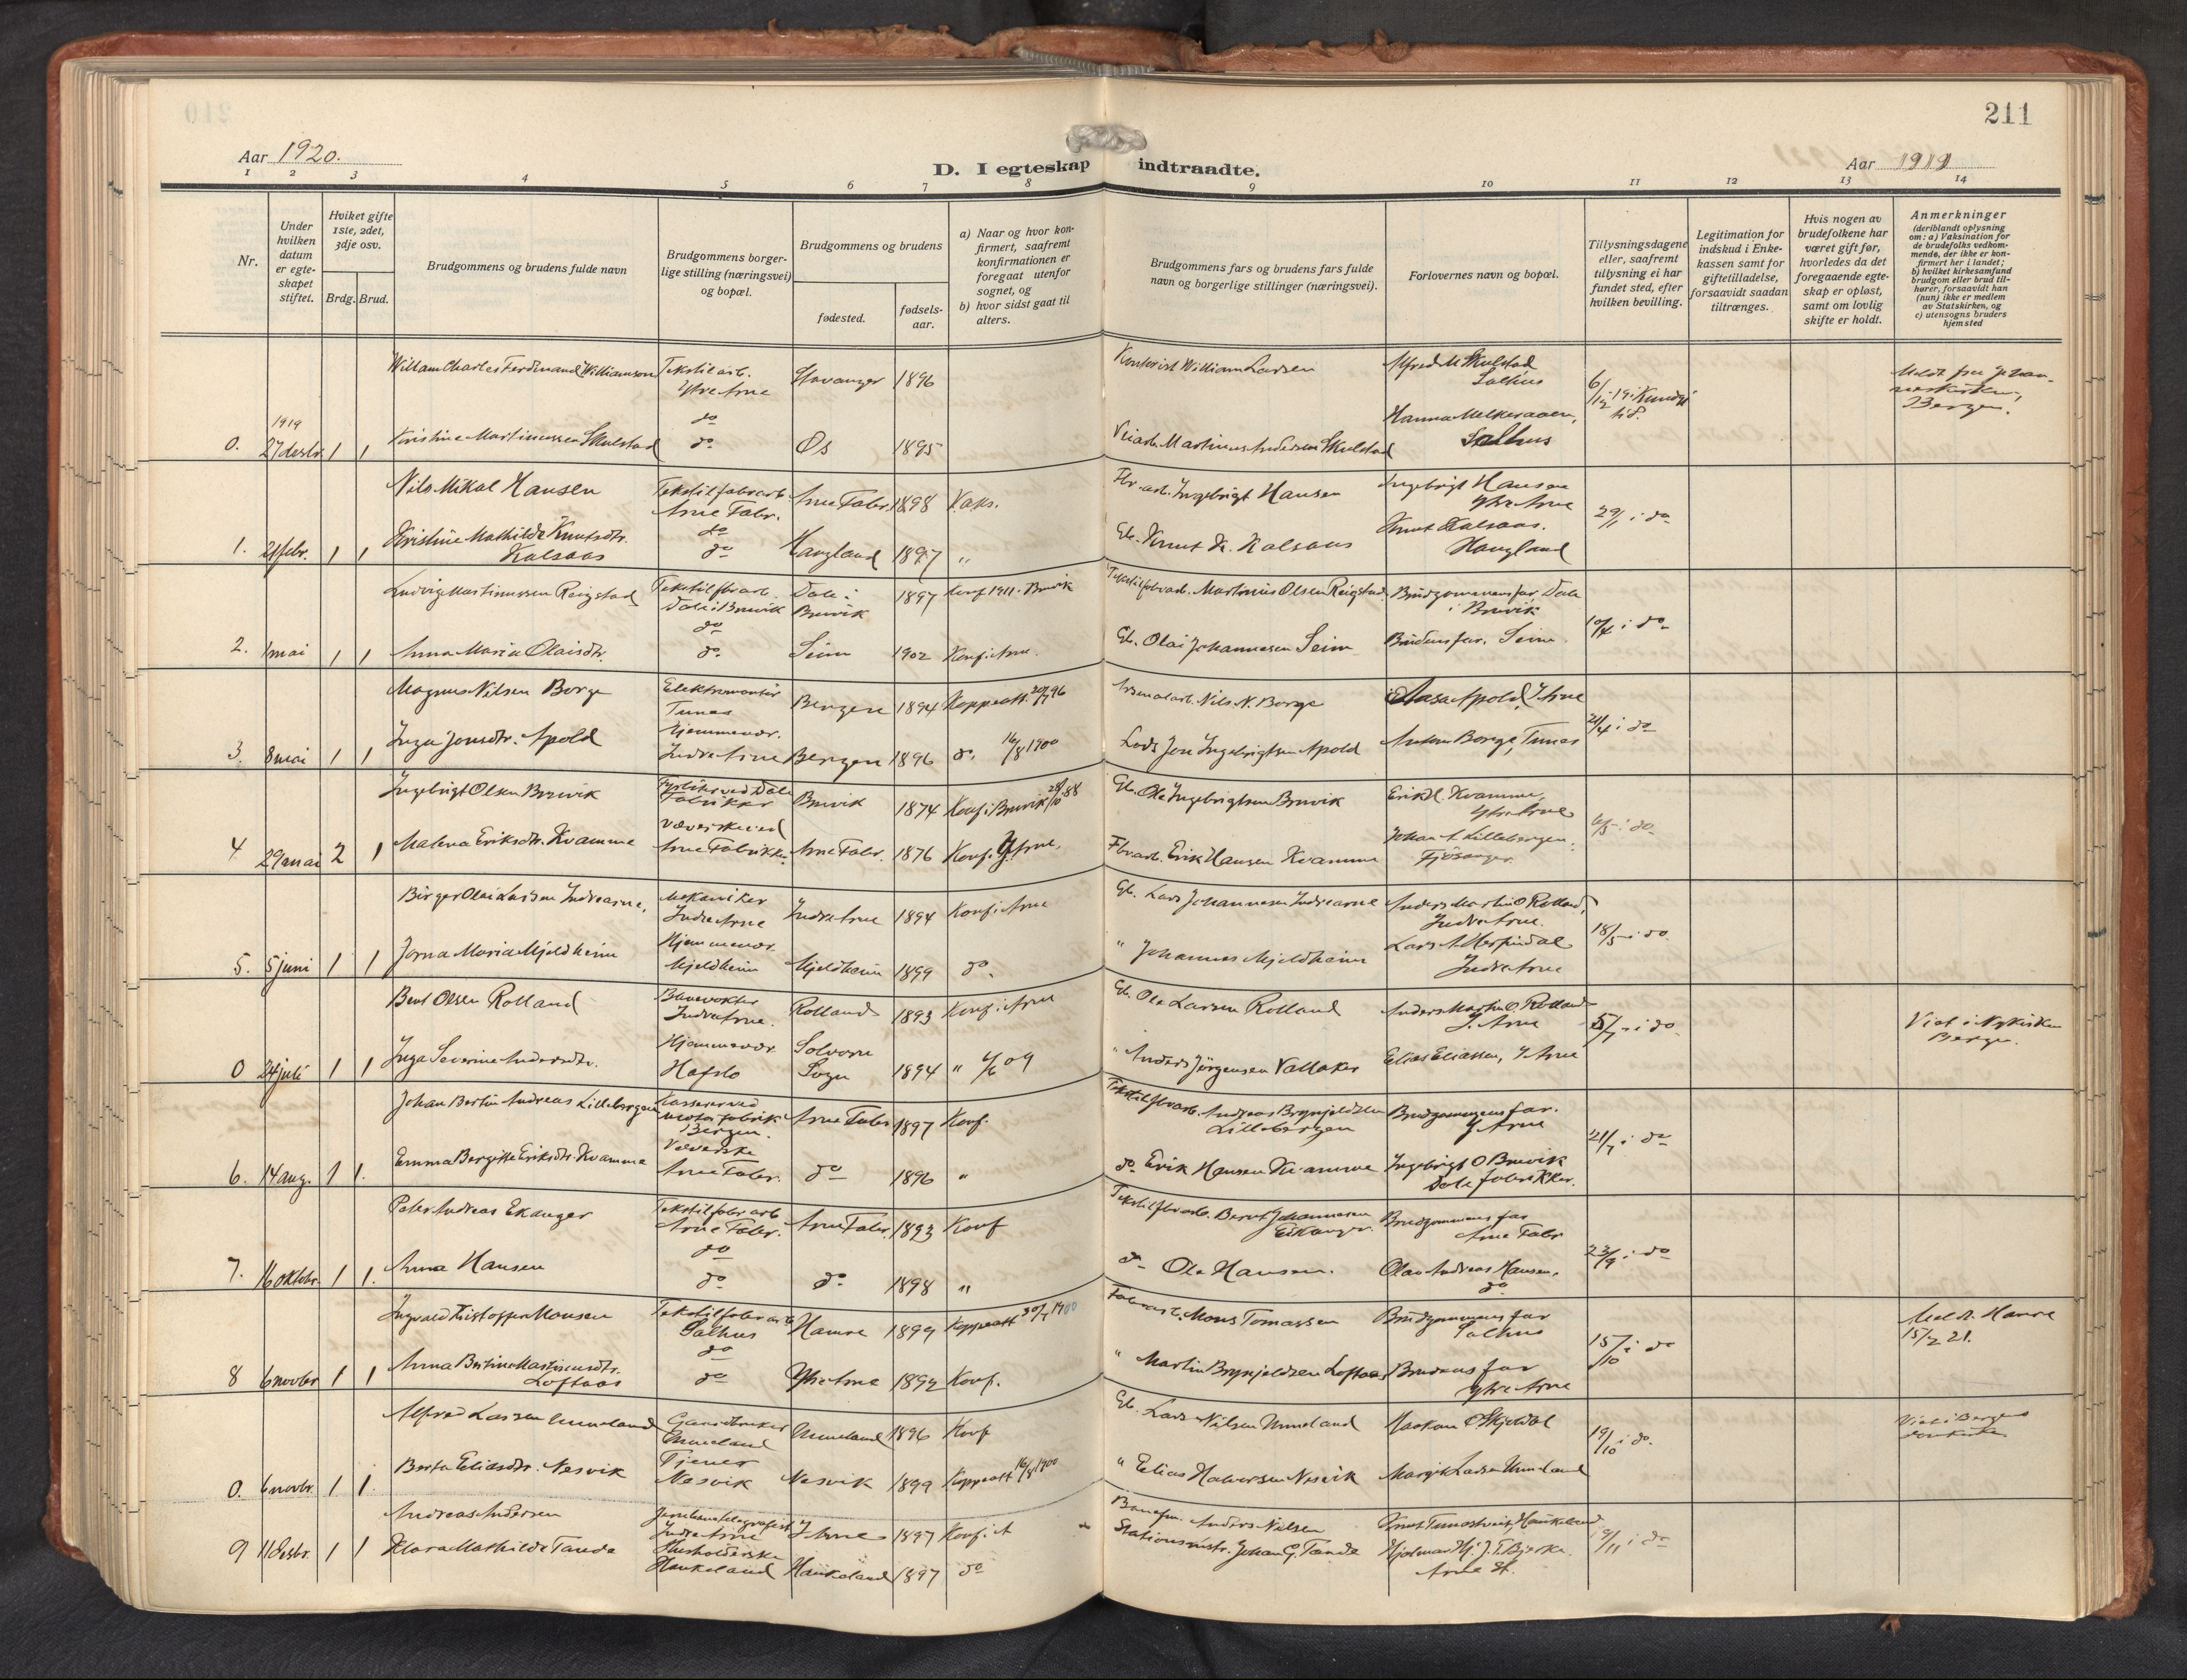 211
Aar 1920.
D. I egteskap indtraadte.
Aar 1919
1 2 3 4 5 6 7 8 9 10 11 12 13 14
Nr.
Under hvilken datum er egteskapet stiftet.
Hviket gifte 1ste, 2det, 3dje osv.
Brdg. Brud.
Brudgommens og brudens fulde navn
Brudgommens borgerlige stilling (næringsvei) og bopæl.
Brudgommens og brudens
fødested.
fødselsaar.
a) Naar og hvor konfirmert, saafremt konfirmationen er foregaat utenfor sognet, og
b) hvor sidst gaat til alters.
Brudgommens fars og brudens fars fulde navn og borgerlige stillinger (næringsvei).
Forlovernes navn og bopæl.
Tillysningsdagene eller, saafremt tillysning ei har fundet sted, efter hvilken bevilling.
Legitimation for indskud i Enkekassen samt for giftetilladelse, forsaavidt saadan tiltrænges.
Hvis nogen av brudefolkene har været gift før, hvorledes da det foregaaende egteskap er opløst, samt om lovlig skifte er holdt.
Anmerkninger (deriblandt oplysning om: a) Vaksination for de brudefolks vedkommende, der ikke er konfirmert her i landet; b) hvilket kirkesamfund brudgom eller brud tilhører, forsaavidt han (hun) ikke er medlem av Statskirken, og c) utensogns bruders hjemsted
William Charles Ferdinand Williamson Tekstilarb. Ytre Arne Stavanger 1896 Kontorist William Larsen Alfred M Skulstad Salhus 6/12-19 i Kundgj. tid. Meldt fra Johanneskirken, Bergen.
0. 1919 27 desbr. 1 1 Kristine Martinussen Skulstad do do. Os 1895 Veiarb. Martinus Andersen Skulstad Hanna Melkeraaen, Salhus
Nils Mikal Hansen Tekstilfabrarb. Arne Fabr. Arne Fabr. 1898 Vaks. Fbr.arb. Ingebrigt Hansen Ingebrigt Hansen Ytre Arne 29/1 i do
1. 21 febr. 1 1 Kristine Mathilde Knutsdtr. Kalsaas do do Haugland 1897 " Gb. Knut K. Kalsaas Knut Kalsaas. Haugland
Ludvig Martinussen Reigstad Tekstilfbrarb. Dale i Bruvik Dale i Bruvik 1897 Konf 1911. Bruvik Tekstilfabrarb. Martinus Olsen Reigstad Brudgommens far, Dale i Bruvik 10/4 i do
2. 1 mai 1 1 Anna Maria Olaisdtr. do do. Seim 1902 Konf. i Arne. Gb. Olai Johannesen Seim Brudens far. Seim
Magnus Nilsen Borge Elektromontør Tunes Bergen 1894 Koppeatt. 20/7 96 Arsenalarb. Nils N. Borge Aasa Apold, I. Arne 21/4 i do
3. 8 mai 1 1 Inga Jonsdtr. Apold Hjemmevær. Indre Arne Bergen 1896 do. 16/8 1900 Lods Jon Ingebrigtsen Apold Anton Borge, Tunes
Ingebrigt Olsen Bruvik Dale Fabrikker Bruvik 1874 Konf. i Bruvik 28/10 88 Gb. Ole Ingebrigtsen Bruvik Erik H. Kvamme, Ytre Arne 6/5 i do
4 29 mai 2 1 Malena Eriksdtr. Kvamme Væverske ved Arne Fabrikker Arne Fabr. 1876 Konf. Y. Arne. Fbrarb. Erik Hansen Kvamme Johan A. Lillebergen, Fjøsanger.
Birger Olai Larsen Indrearne, Mekaniker Indre Arne Indre Arne 1894 Konf. i Arne Gb. Lars Johannesen Indrearne Anders Martin O Rolland, Indre Arne. 18/5 i do.
5. 5 juni 1 1 Jorna Maria Mjeldheim Hjemmevær. Mjeldheim Mjeldheim 1899 do. " Johannes Mjeldheim Lars A Herfindal Indre Arne
Bent Olsen Rolland Banevokter Indre Arne. Rolland 1893 Konf. i Arne Gb. Ole Larsen Rolland Anders Martin O. Rolland I. Arne 5/7 i do. Viet i Nykirken Bergen.
0 24 juli 1 1 Inga Severine Andersdtr. Hjemmevær. Hafslo Solvorn Sogn 1894 " 6/6 09 " Anders Jørgensen Vallaker Elias Eliassen, I Arne
Johan Bertin Andreas Lillebergen Kasserer ved motorfabrik Bergen. Arne Fabr 1897 Konf. Tekstilfbrarb. Andreas Brynjeldsen Lillebergen Brudgommens far. Y Arne 21/7 i do
6. 14 aug. 1 1. Emma Bergitte Eriksdtr. Kvamme Væverske Arne Fabr. do 1896 " do Erik Hansen Kvamme Ingebrigt O Bruvik Dale fabrikker.
Peter Andreas Ekanger Tekstilfabrarb Arne Fabr. Arne Fabr. 1893 Konf Tekstilfbrarb. Bernt Johannesen Eikanger. Brudgommens far Arne Fabr 23/9 i do
7. 16 oktbr. 1 1. Anna Hansen do do do 1898 " do Ole Hansen. Olav Andreas Hansen, do
Ingvald Kristoffer Monsen Tekstilfabrarb Salhus Hamre 1899 Koppeatt 30/7 1900 Fabrarb. Mons Tomassen Brudgommens far Salhus 15/10 i do Meldt. Hamre 15/2 21.
8 6 novbr 1 1 Anna Bertine Martinusdtr. Loftaas do do Ytre Arne 1892 Konf. " Martin Brynjeldsen Loftaas Brudens far Ytre Arne
Alfred Larsen Unneland Gaardbruker Unneland Unneland 1896 Konf Gb. Lars Nilsen Unneland Haakon O Skjeldal 19/10 i do. Viet i Bergens domkirke
0. 6 novbr. 1 1. Berta Eliasdtr. Nesvik Tjener Nesvik Nesvik 1899 Koppeatt 16/8 1900 " Elias Halvorsen Nesvik Margit Larsen Unneland
Andreas Andersen Jernbanetelegrafist Indre Arne I. Arne 1897 Konf. i A Banefm. Anders Nilsen Knut Tunestveit, Haukeland 19/11 i do
9 11 desbr. 1 1 Klara Mathilde Tande Husholderske Haukeland Haukeland 1897 do Stationsmstr. Johan G. Tande Hjalmar Hj. J. T. Bjerke. Arne St.